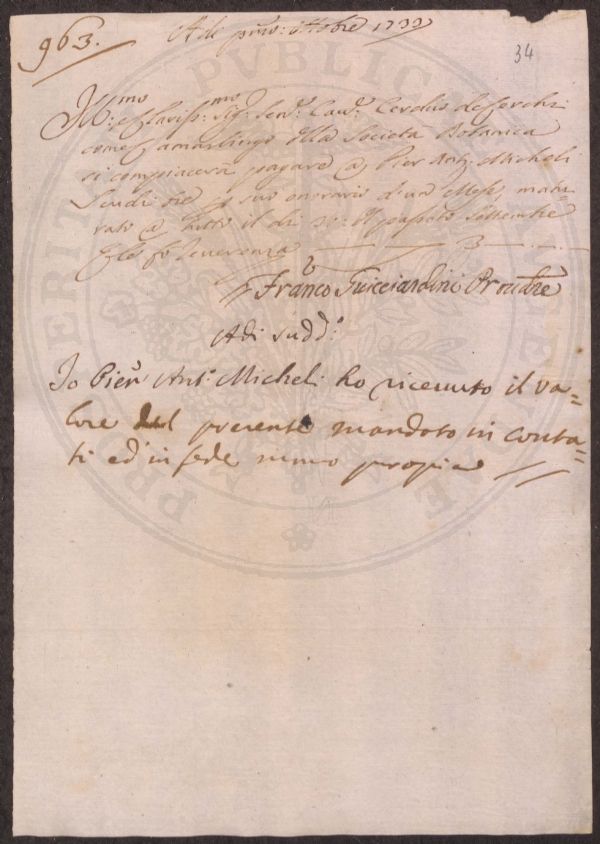 963.
A dì primo: ottobre 1732
34
Ill:mo e Clariss:mo Sig: Sen:re Cav:re Cerchio de Cerchi
come Camarlingo della Società Botanica
si compiacerà pagare a Pier Ant: Micheli
Scudi tre p suo onorario d'un Mese matu-
rato a tutto il dì 30: del passato Settembre
E le fo reverenza
Franco Guicciardini Provdre
Adi sudd:o
Io Pier Ant:o Micheli ho riceuuto il va=
lore del presente mandato in conta=
ti ed in fede mano propia
PRO PUBLICAE